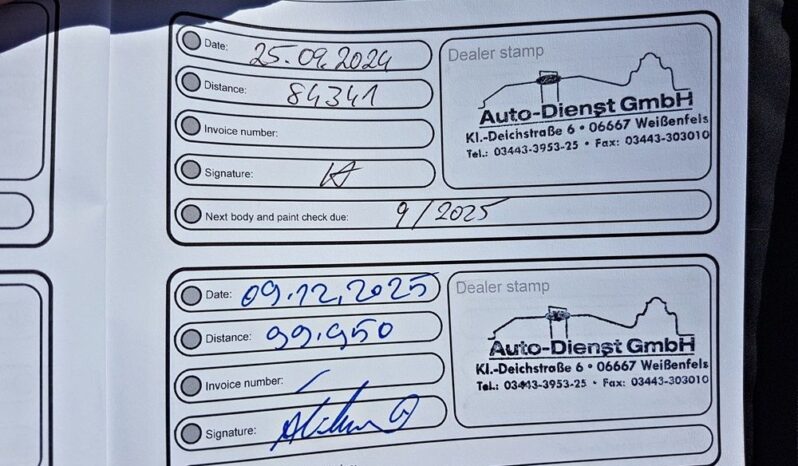 Date: 25.09.2024
Distance: 84341
Invoice number:
Signature:
Next body and paint check due: 9/2025
Dealer stamp
Auto-Dienst GmbH
Kl.-Deichstraße 6 • 06667 Weißenfels
Tel.: 03443-3953-25 • Fax: 03443-303010
Date: 09.12.2025
Distance: 99.950
Invoice number: /
Signature:
Dealer stamp
Auto-Dienst GmbH
Kl.-Deichstraße 6 • 06667 Weißenfels
Tel.: 03443-3953-25 • Fax: 03443-303010